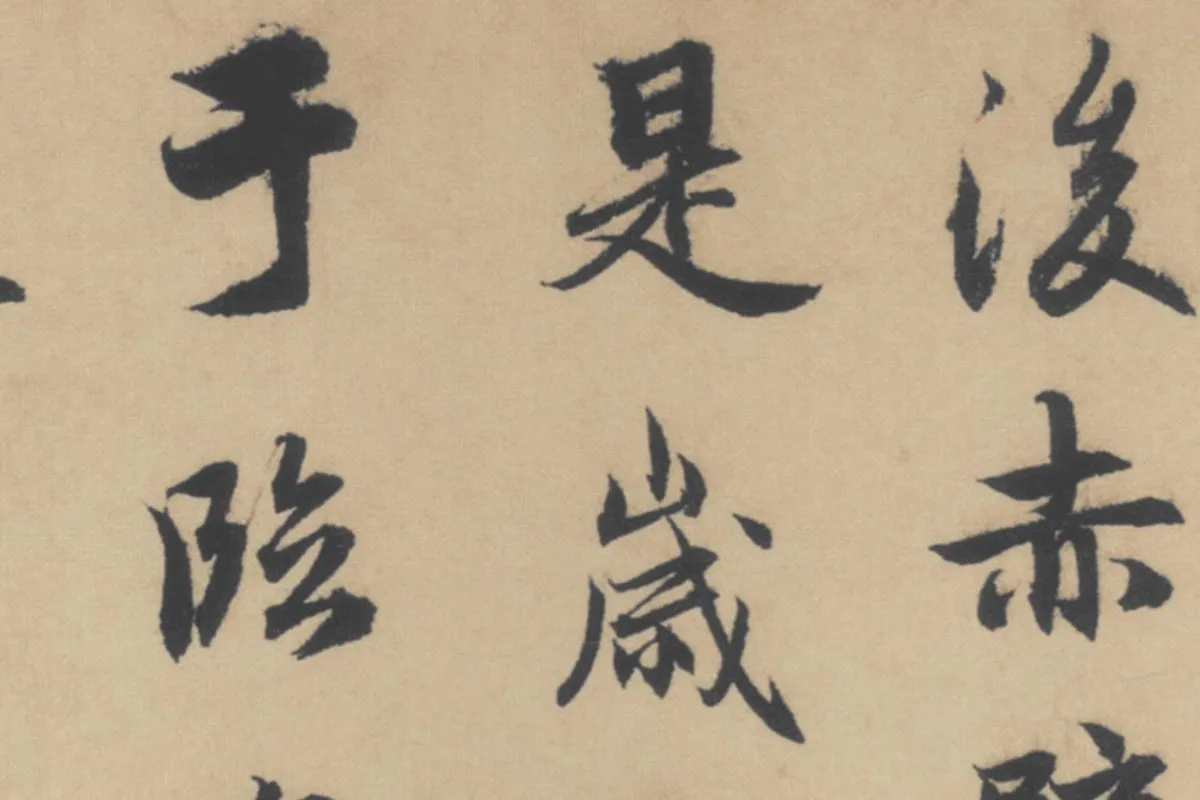 後赤
是歲
于臨